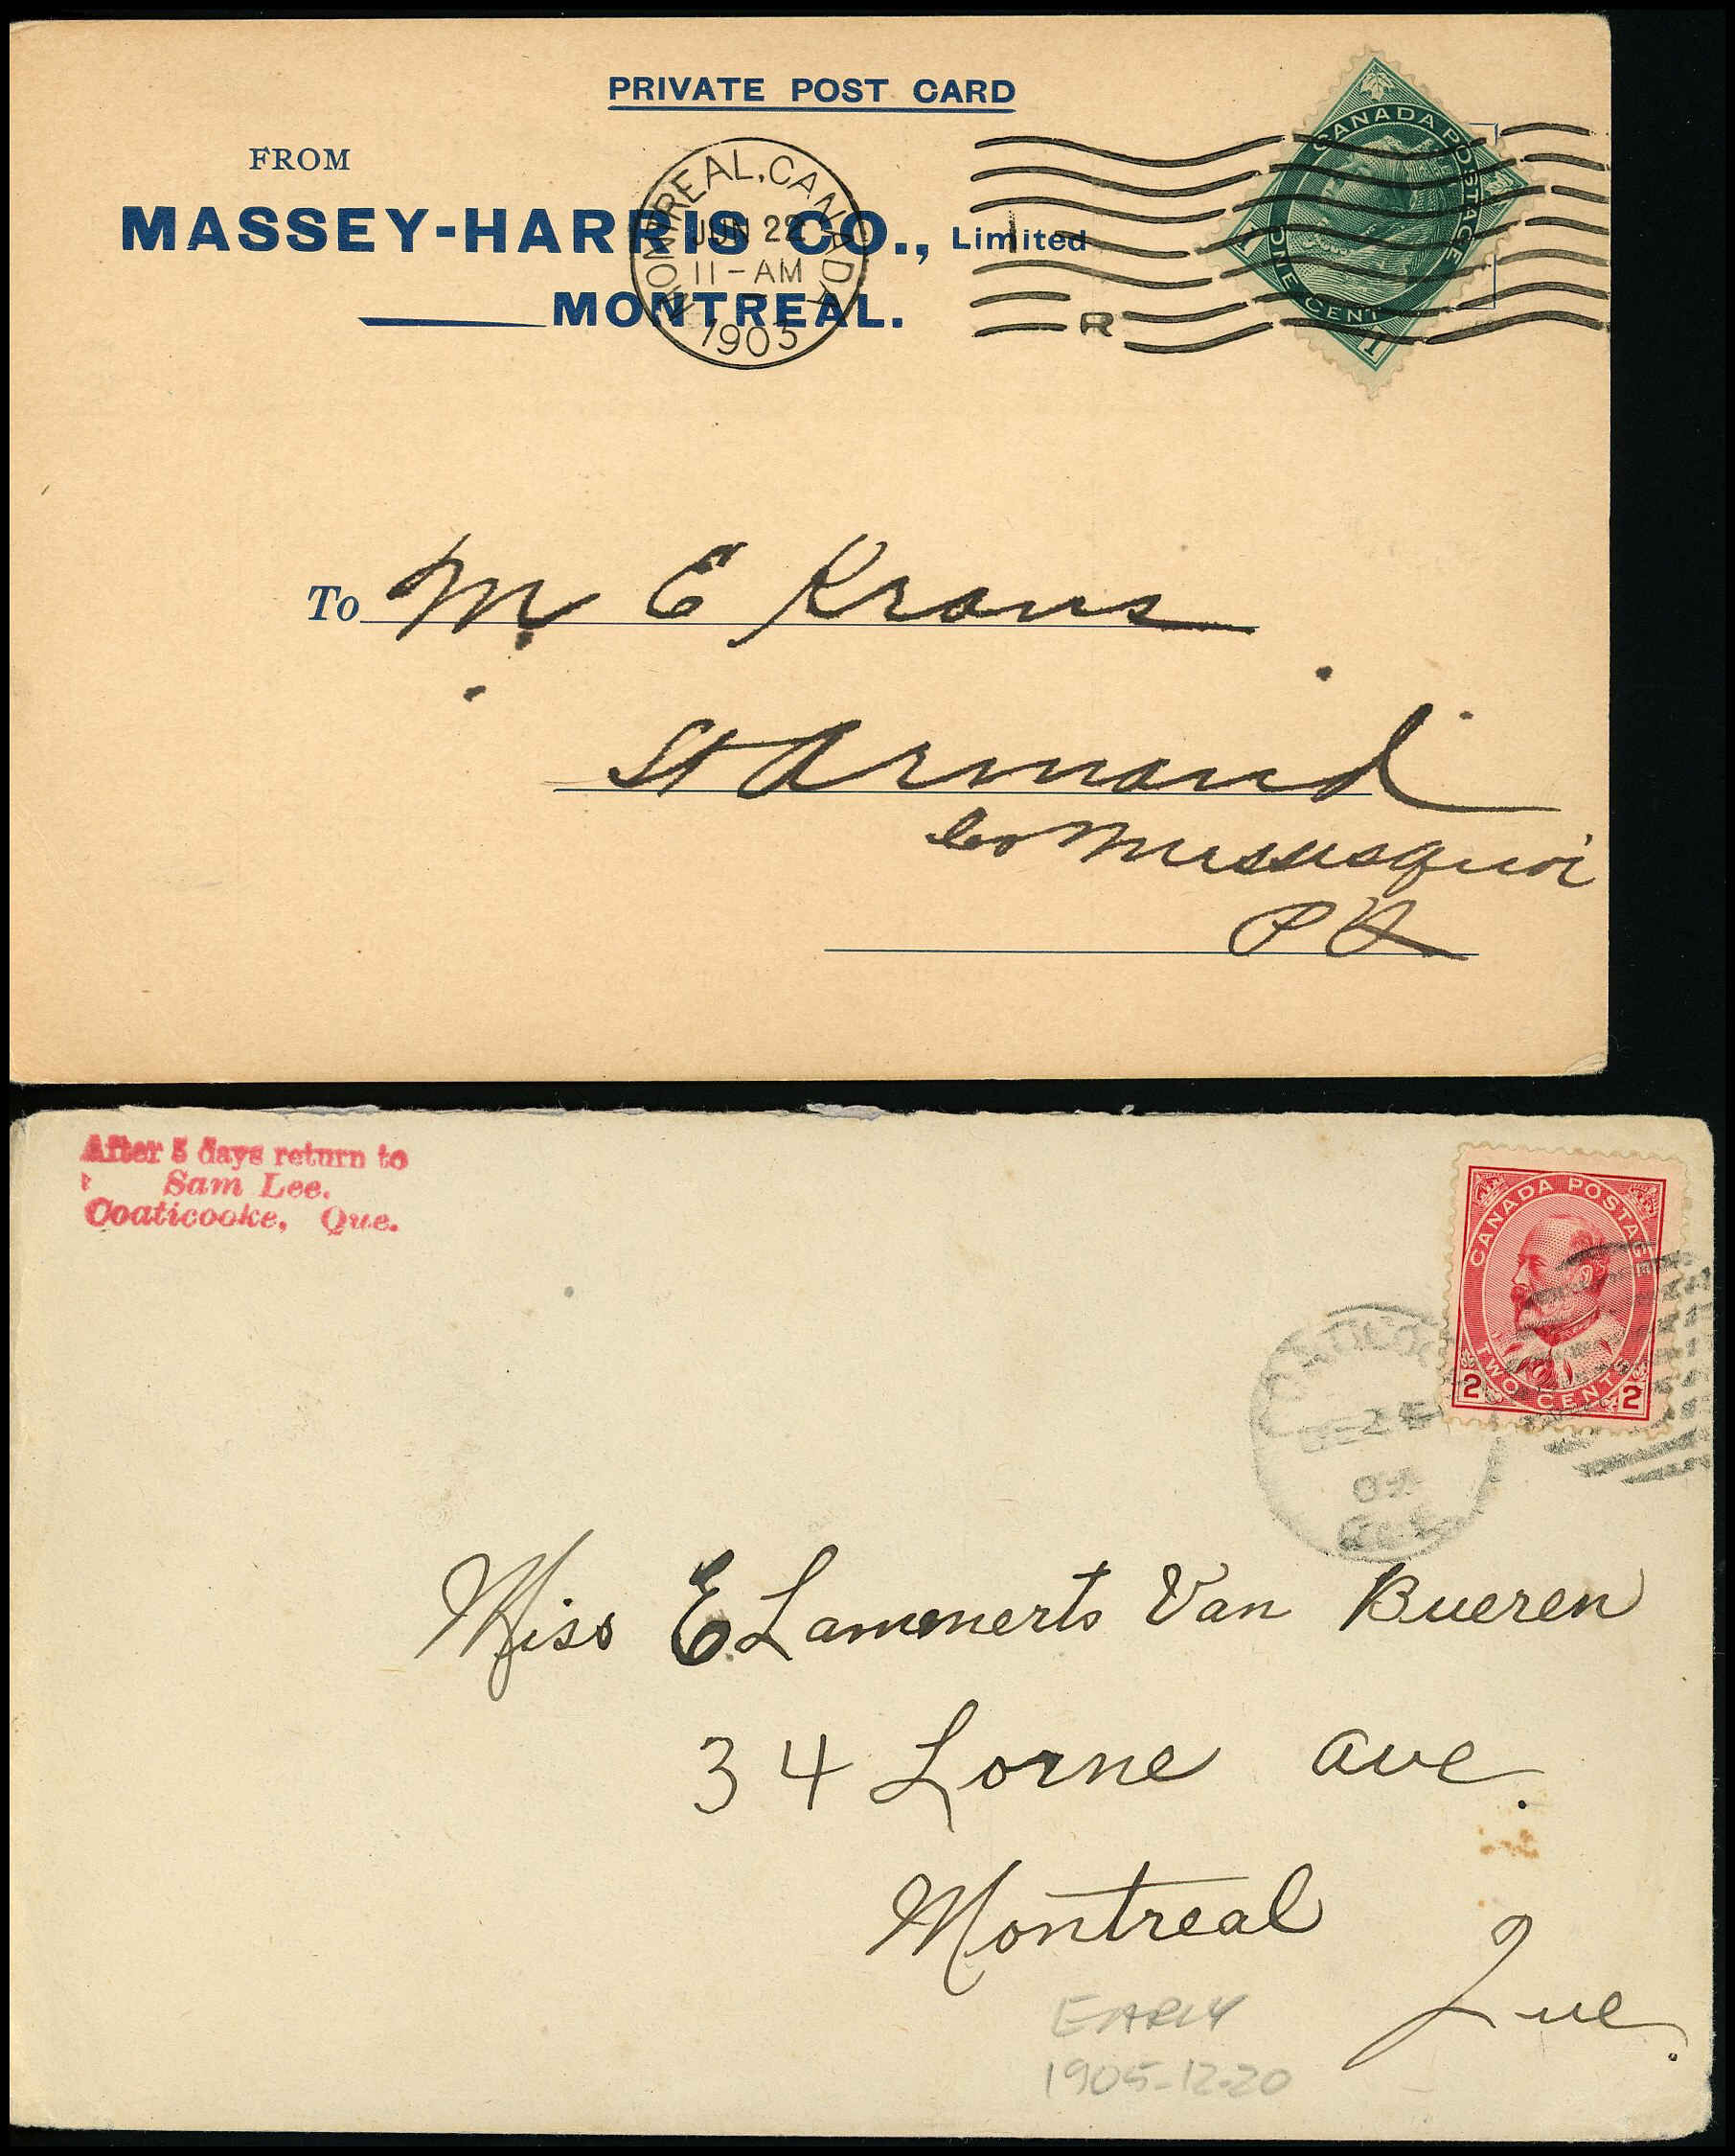 PRIVATE POST CARD
FROM
MASSEY-HARRIS CO., Limited
MONTREAL.
MONTREAL, CANADA
JUN 22
11-AM
1903
R
CANADA POSTAGE
ONE CENT
1 1
To M. E Kraus
St Armand
Co Missisquoi
P Q
After 5 days return to
Sam Lee.
Coaticooke, Que.
CANADA POSTAGE
TWO CENTS
2 2
Miss E. Lammerts Van Bueren
34 Lorne ave.
Montreal
Que.
EARLY
1905-12-20